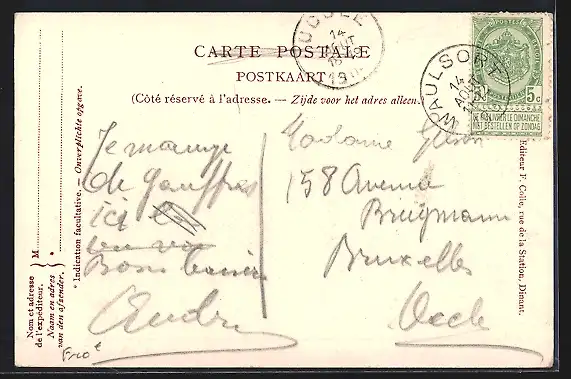 CARTE POSTALE
POSTKAART
(Côté réservé à l'adresse. — Zijde voor het adres alleen.
UCCLE
14
WAULSORT
14
AOUT
POSTES
5c 5c
NE PAS LIVRER LE DIMANCHE
NIET BESTELLEN OP ZONDAG
M
Nom et adresse
de l'expéditeur.
Naam en adres
van den afzender.
* Indication facultative. — Onverplichte opgave.
Je mange
de gauffres
ici
Bons baisers
André
Madame
158 Avenue
Brugmann
Bruxelles
Uccle
Editeur F. Colle, rue de la Station, Dinant.